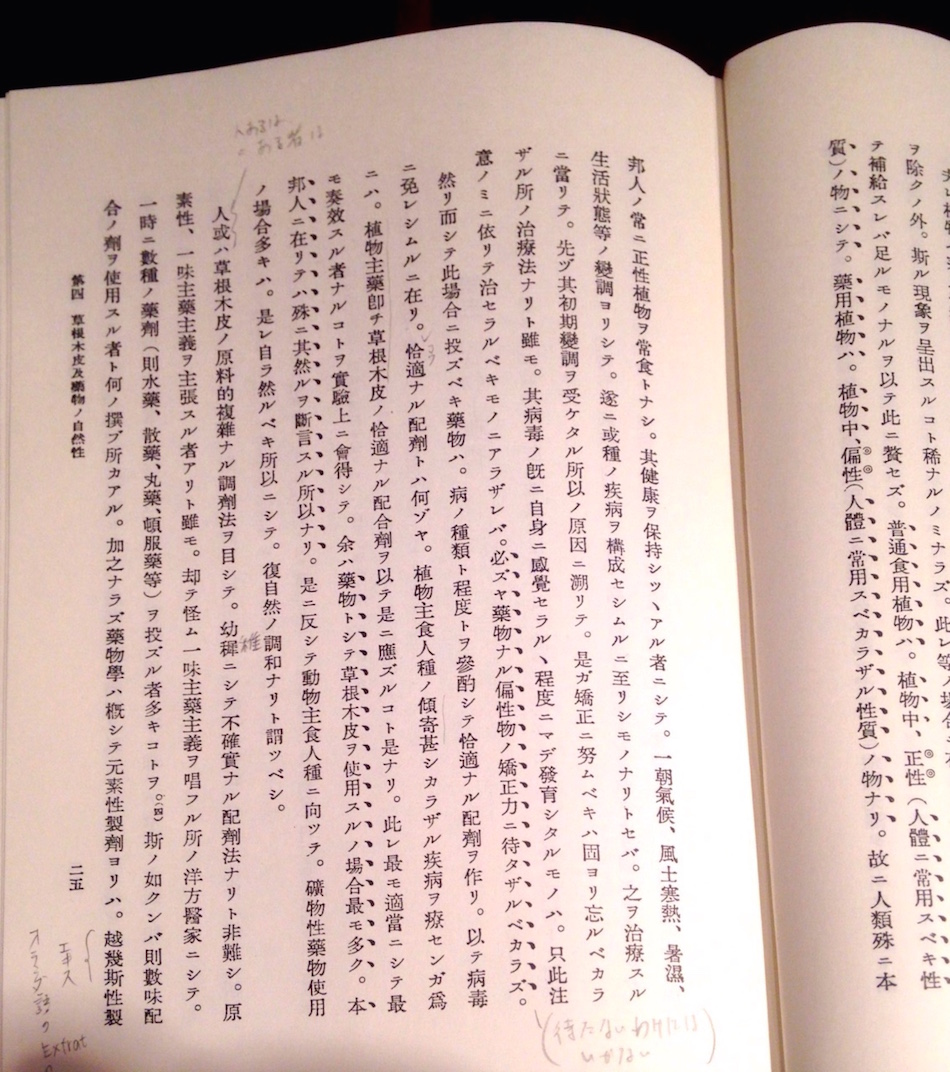 ヲ除クノ外。斯ル現象ヲ呈出スルコト稀ナルノミナラズ。此レ等ノ場合
テ補給スレバ足ルモノナルヲ以テ此ニ贅セズ。普通食用植物ハ。植物中、正性(人體ニ常用スベキ性
質)ノ物ニシテ。藥用植物ハ。植物中、偏性(人體ニ常用スベカラザル性質)ノ物ナリ。故ニ人類殊ニ本
邦人ノ常ニ正性植物ヲ常食トナシ。其健康ヲ保持シツヽアル者ニシテ。一朝氣候、風土寒熱、暑濕、
生活狀態等ノ變調ヨリシテ。遂ニ或種ノ疾病ヲ構成セシムルニ至リシモノナリトセバ。之ヲ治療スル
ニ當リテ。先ヅ其初期變調ヲ受ケタル所以ノ原因ニ溯リテ。是ガ矯正ニ努ムベキハ固ヨリ忘ルベカラ
ザル所ノ治療法ナリト雖モ。其病毒ノ旣ニ自身ニ感覺セラルヽ程度ニマデ發育シタルモノハ。只此注
意ノミニ依リテ治セラルベキモノニアラザレバ。必ズヤ藥物ナル偏性物ノ矯正力ニ待タザルベカラズ。
(待たないわけには
いかない)
然リ而シテ此場合ニ投ズベキ藥物ハ。病ノ種類ト程度トヲ參酌シテ恰適ナル配劑ヲ作リ。以テ病毒
ニ免レシムルニ在リ。恰適ナル配劑トハ何ゾヤ。植物主食人種ノ傾寄甚シカラザル疾病ヲ療センガ爲
ニハ。植物主藥卽チ草根木皮ノ恰適ナル配合劑ヲ以テ是ニ應ズルコト是ナリ。此レ最モ適當ニシテ最
モ奏效スル者ナルコトヲ實驗上ニ會得シテ。余ハ藥物トシテ草根木皮ヲ使用スルノ場合最モ多ク。本
邦人ニ在リテハ殊ニ其然ルヲ斷言スル所以ナリ。是ニ反シテ動物主食人種ニ向ツテ。礦物性藥物使用
ノ場合多キハ。是レ自ラ然ルベキ所以ニシテ。復自然ノ調和ナリト謂ツベシ。
人あるは
ある者は
人或ハ草根木皮ノ原料的複雜ナル調劑法ヲ目シテ。幼稺ニシテ不確實ナル配劑法ナリト非難シ。原
稚
素性、一味主藥主義ヲ主張スル者アリト雖モ。却テ怪ム一味主藥主義ヲ唱フル所ノ洋方醫家ニシテ。
一時ニ數種ノ藥劑(則水藥、散藥、丸藥、頓服藥等)ヲ投ズル者多キコトヲ。(四)斯ノ如クンバ則數味配
合ノ劑ヲ使用スル者ト何ノ撰ブ所カアル。加之ナラズ藥物學ハ槪シテ元素性製劑ヨリハ。越幾斯性製
エキス
オランダ語の
Extrat
第四 草根木皮及藥物ノ自然性
二五